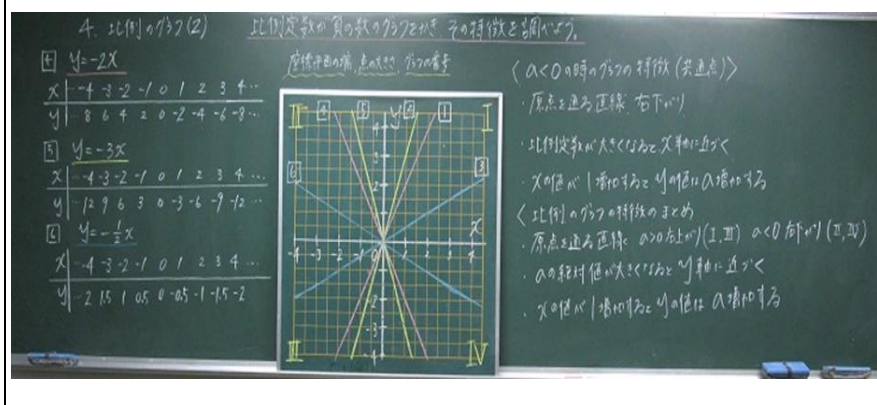 4. 比例のグラフ(2)
比例定数が負の数のグラフをかき、その特徴を調べよう。
4 y=-2x
x … -4 -3 -2 -1 0 1 2 3 4 …
y … 8 6 4 2 0 -2 -4 -6 -8 …
5 y=-3x
x … -4 -3 -2 -1 0 1 2 3 4 …
y … 12 9 6 3 0 -3 -6 -9 -12 …
6 y=-1/2x
x … -4 -3 -2 -1 0 1 2 3 4 …
y … 2 1.5 1 0.5 0 -0.5 -1 -1.5 -2
座標平面の端、点の大きさ、グラフの番号
II 4 5 y 2 1 I
4
3
6 2 3
x
-4 -3 -2 -1 0 1 2 3 4
-2
-3
III -4 IV
〈a<0の時のグラフの特徴(共通点)〉
・原点を通る直線 右下がり
・比例定数が大きくなるとx軸に近づく
・xの値が1増加するとyの値はa増加する
〈比例のグラフの特徴のまとめ
・原点を通る直線 a>0右上がり(I,III) a<0右下がり(II,IV)
・aの絶対値が大きくなるとy軸に近づく
・xの値が1増加するとyの値はa増加する